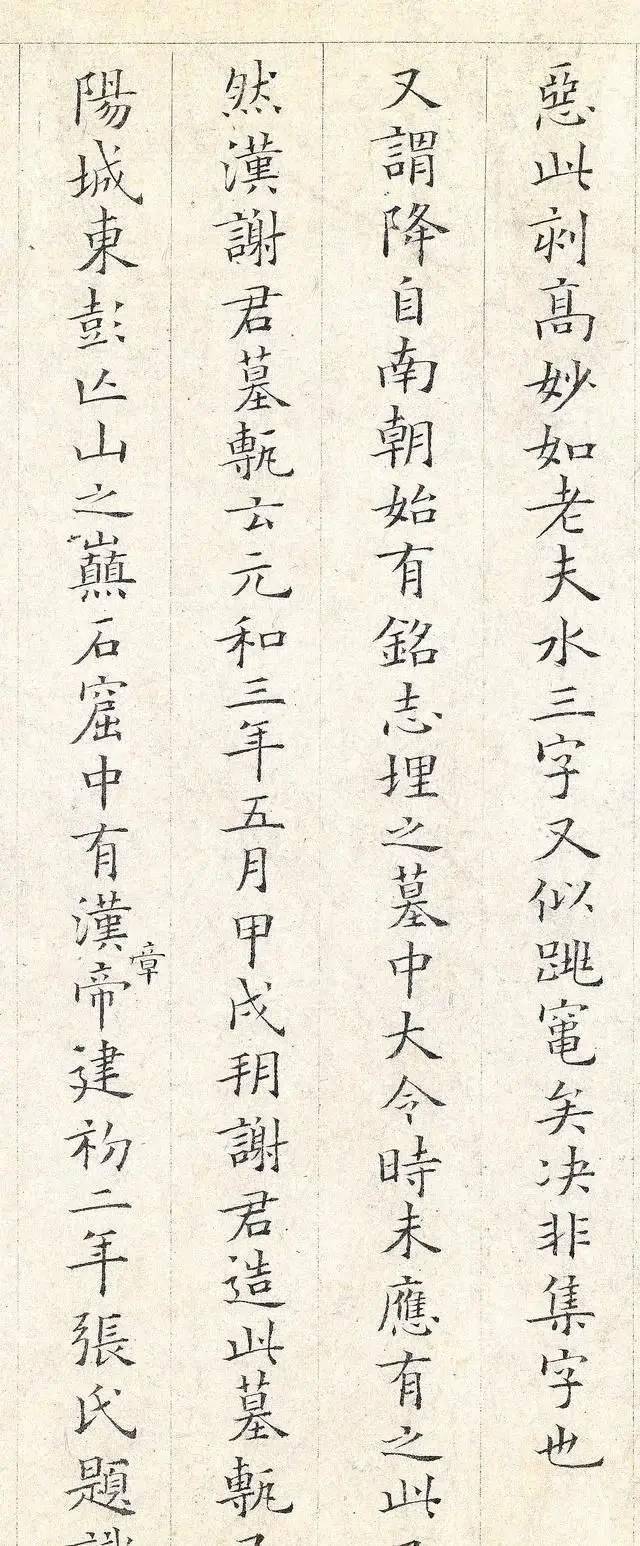 惡此刻高妙如老夫水三字又似跳竃矣决非集字也
又謂降自南朝始有銘志埋之墓中大令時未應有之此
然漢謝君墓甎云元和三年五月甲戌朔謝君造此墓甎
陽城東彭亾山之巔石窟中有漢章帝建初二年張氏題